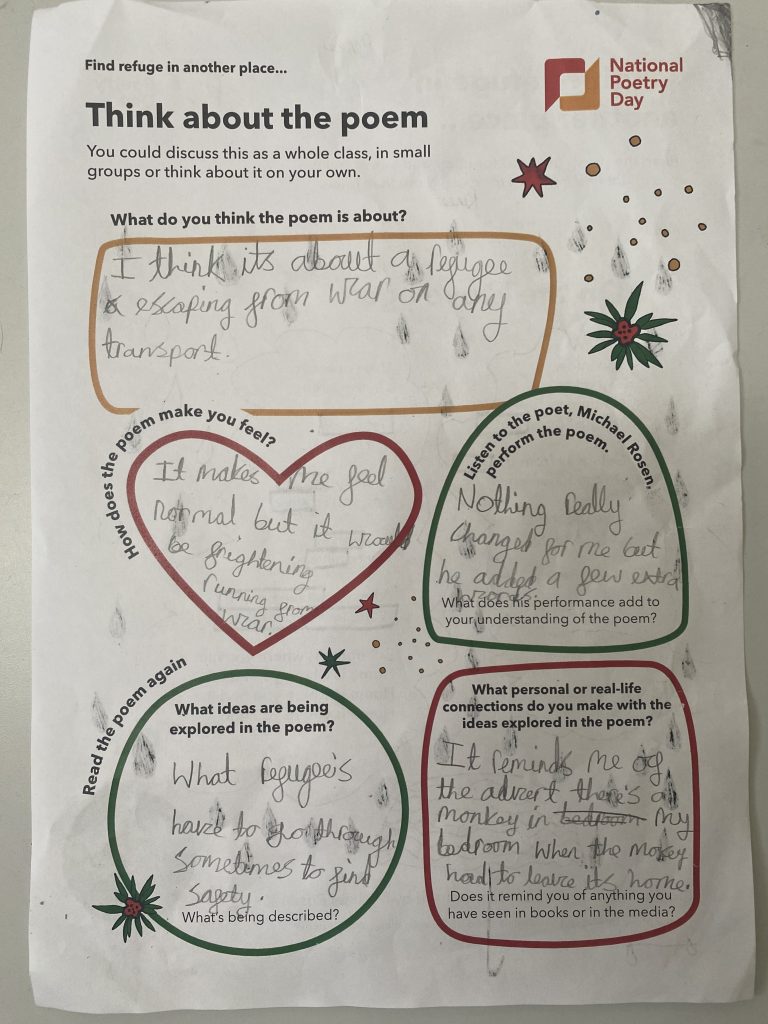 Find refuge in another place...
National
Poetry
Day
Think about the poem
You could discuss this as a whole class, in small
groups or think about it on your own.
What do you think the poem is about?
I think its about a refugee
escaping from war on any
transport.
How does the poem make you feel?
It makes me feel
normal but it would
be frightening
running from
war.
Listen to the poet, Michael Rosen,
perform the poem.
Nothing really
changed for me but
he added a few extra
words.
What does his performance add to
your understanding of the poem?
Read the poem again
What ideas are being
explored in the poem?
What refugee's
have to go through
sometimes to find
safty.
What's being described?
What personal or real-life
connections do you make with the
ideas explored in the poem?
It reminds me of
the advert there's a
monkey in bedroom my
bedroom when the mokey
had to leave its home.
Does it remind you of anything you
have seen in books or in the media?